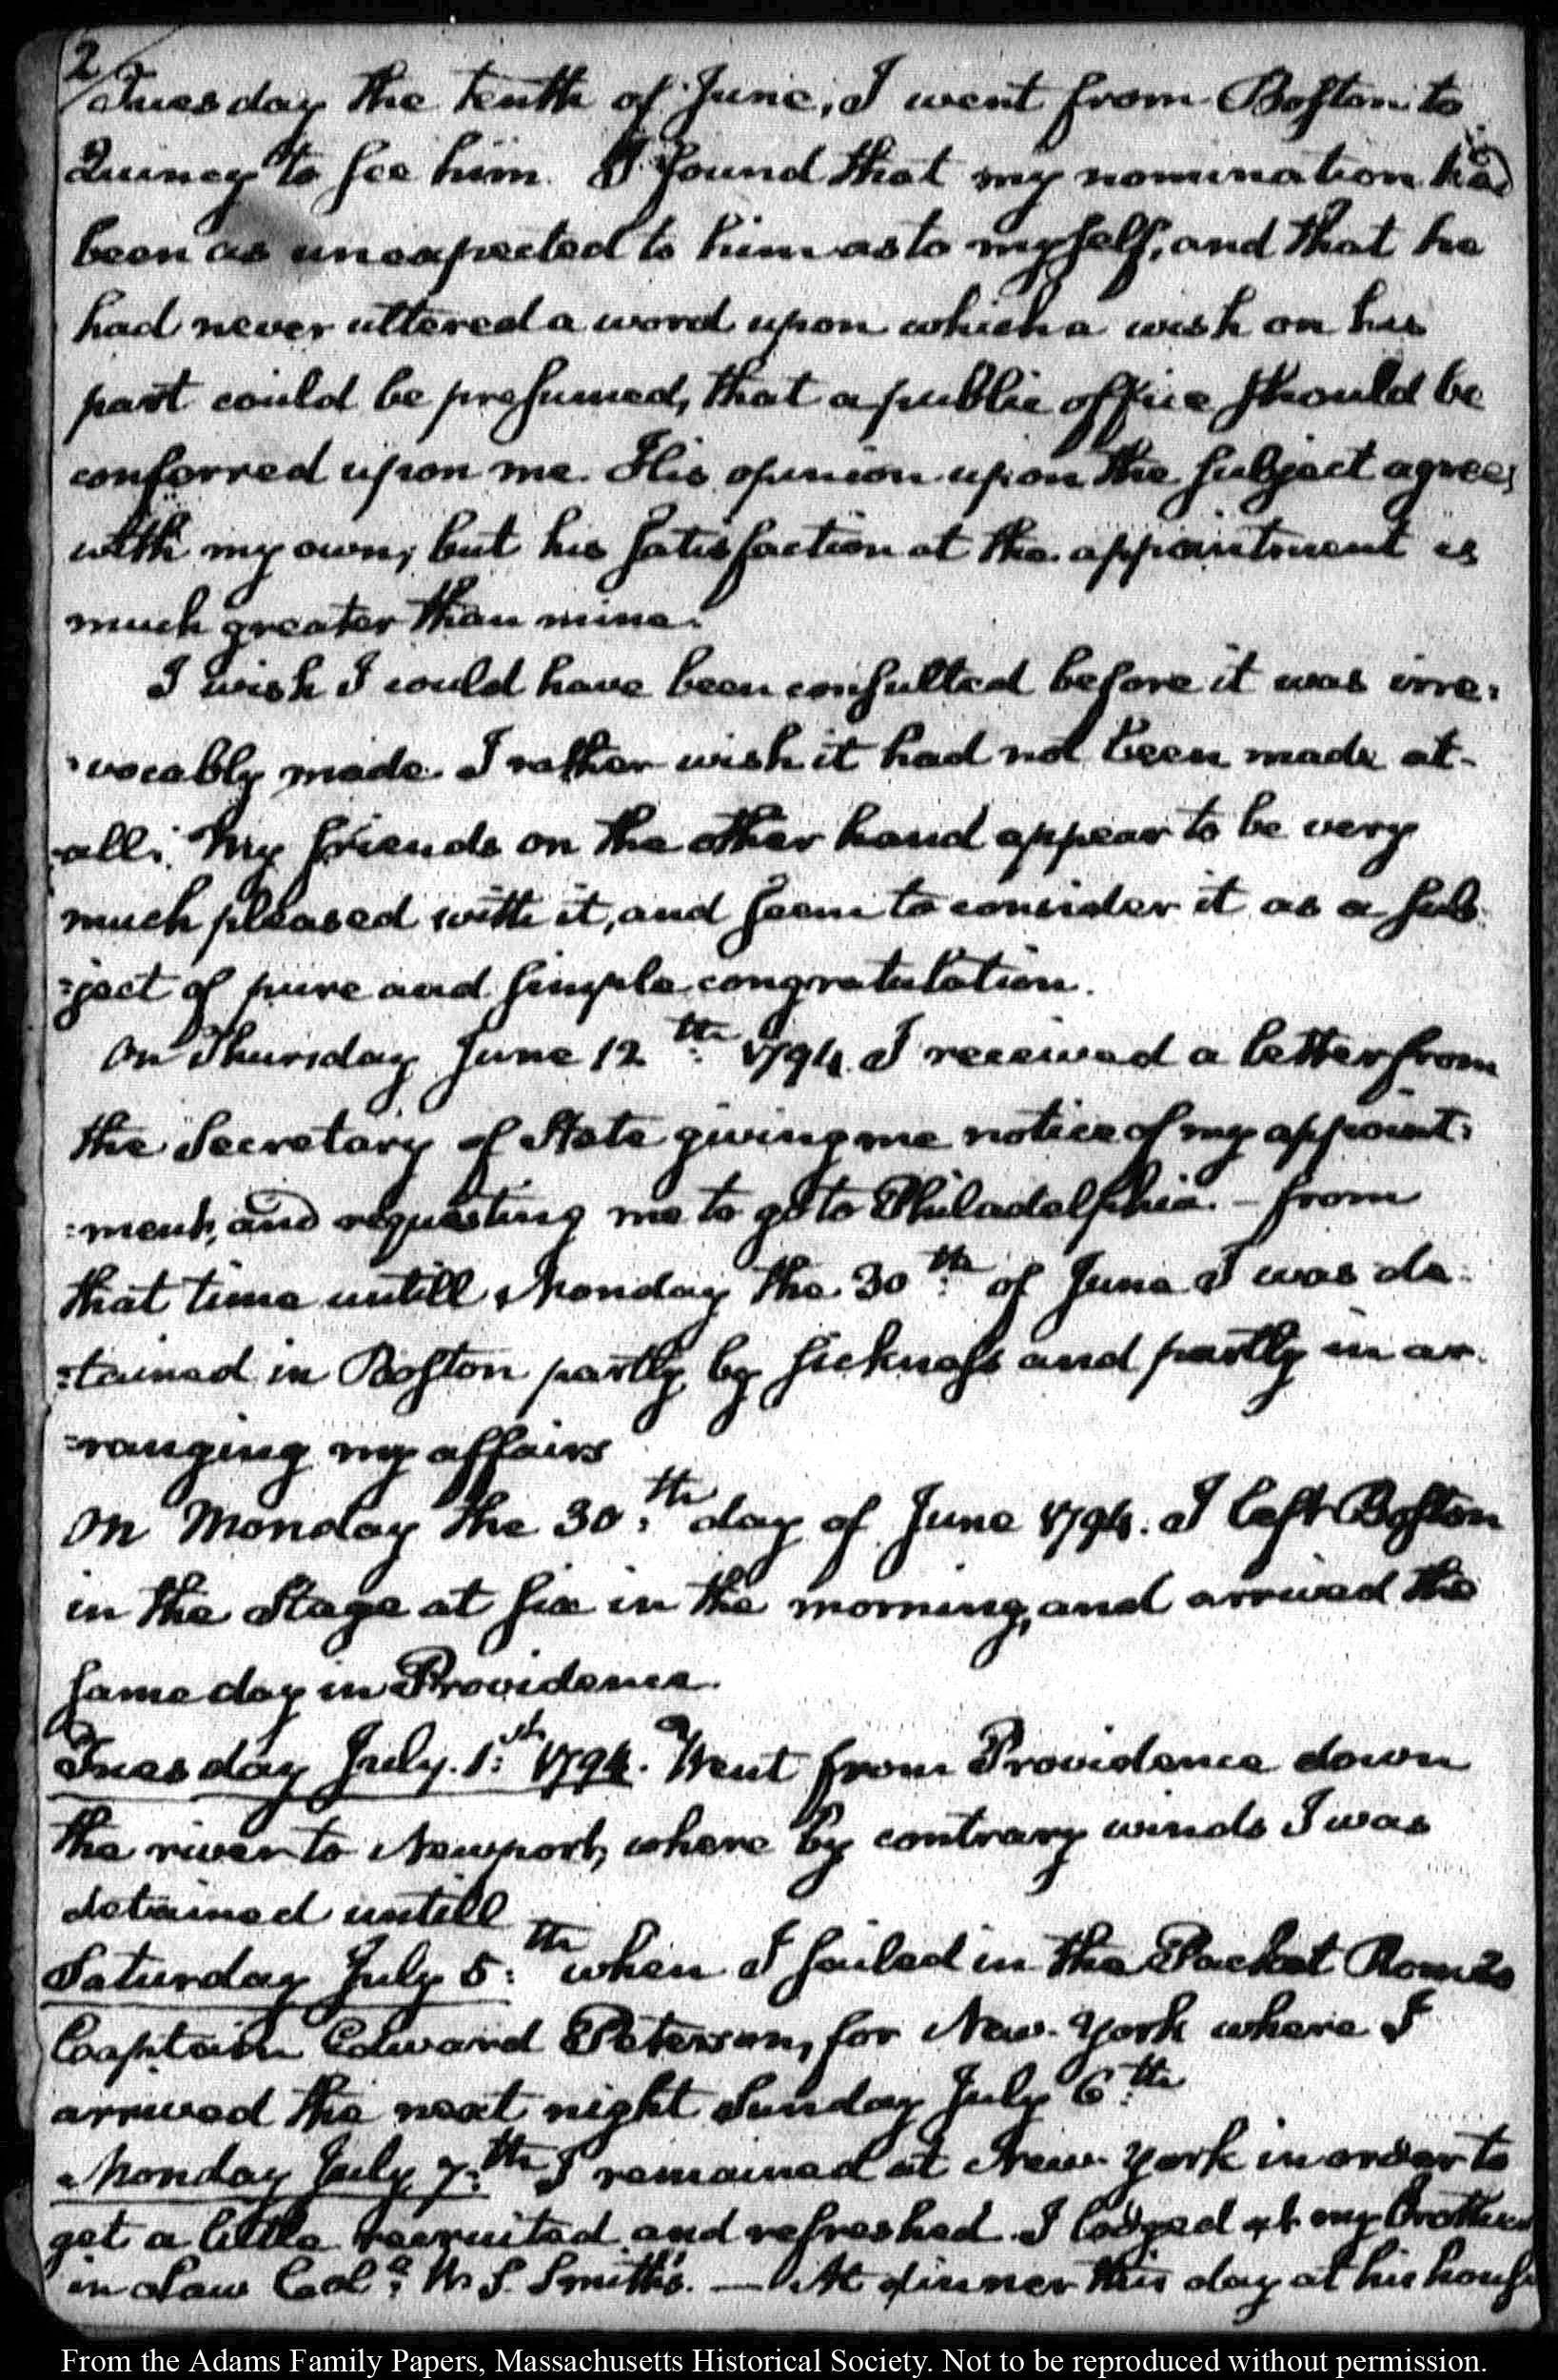 2
Tuesday the tenth of June, I went from Boston to
Quincy to see him. I found that my nomination had
been as unexpected to him as to myself, and that he
had never uttered a word upon which a wish on his
part could be presumed, that a public office should be
conferred upon me. His opinion upon the subject agrees
with my own; but his satisfaction at the appointment is
much greater than mine.
I wish I could have been consulted before it was irre:
:vocably made. I rather wish it had not been made at-
all. My friends on the other hand appear to be very
much pleased with it, and seem to consider it as a sub:
:ject of pure and simple congratulation.
On Thursday June 12.th 1794. I received a letter from
the Secretary of State giving me notice of my appoint:
:ment, and requesting me to go to Philadelphia. — from
that time untill Monday the 30.th of June I was de:
:tained in Boston partly by sickness and partly in ar:
:ranging my affairs
On Monday the 30.th day of June 1794. I left Boston
in the Stage at six in the morning, and arrived the
same day in Providence.
Tuesday July. 1.st 1794. Went from Providence down
the river to Newport, where by contrary winds I was
detained untill
Saturday July 5.th when I sailed in the Packet Romeo
Captain Edward Peterson, for New-York where I
arrived the next night Sunday July 6.th
Monday July 7.th I remained at New-York in order to
get a little recruited and refreshed. I lodged at my Brother
in Law Col.o W. S. Smith's. — At dinner this day at his house
From the Adams Family Papers, Massachusetts Historical Society. Not to be reproduced without permission.